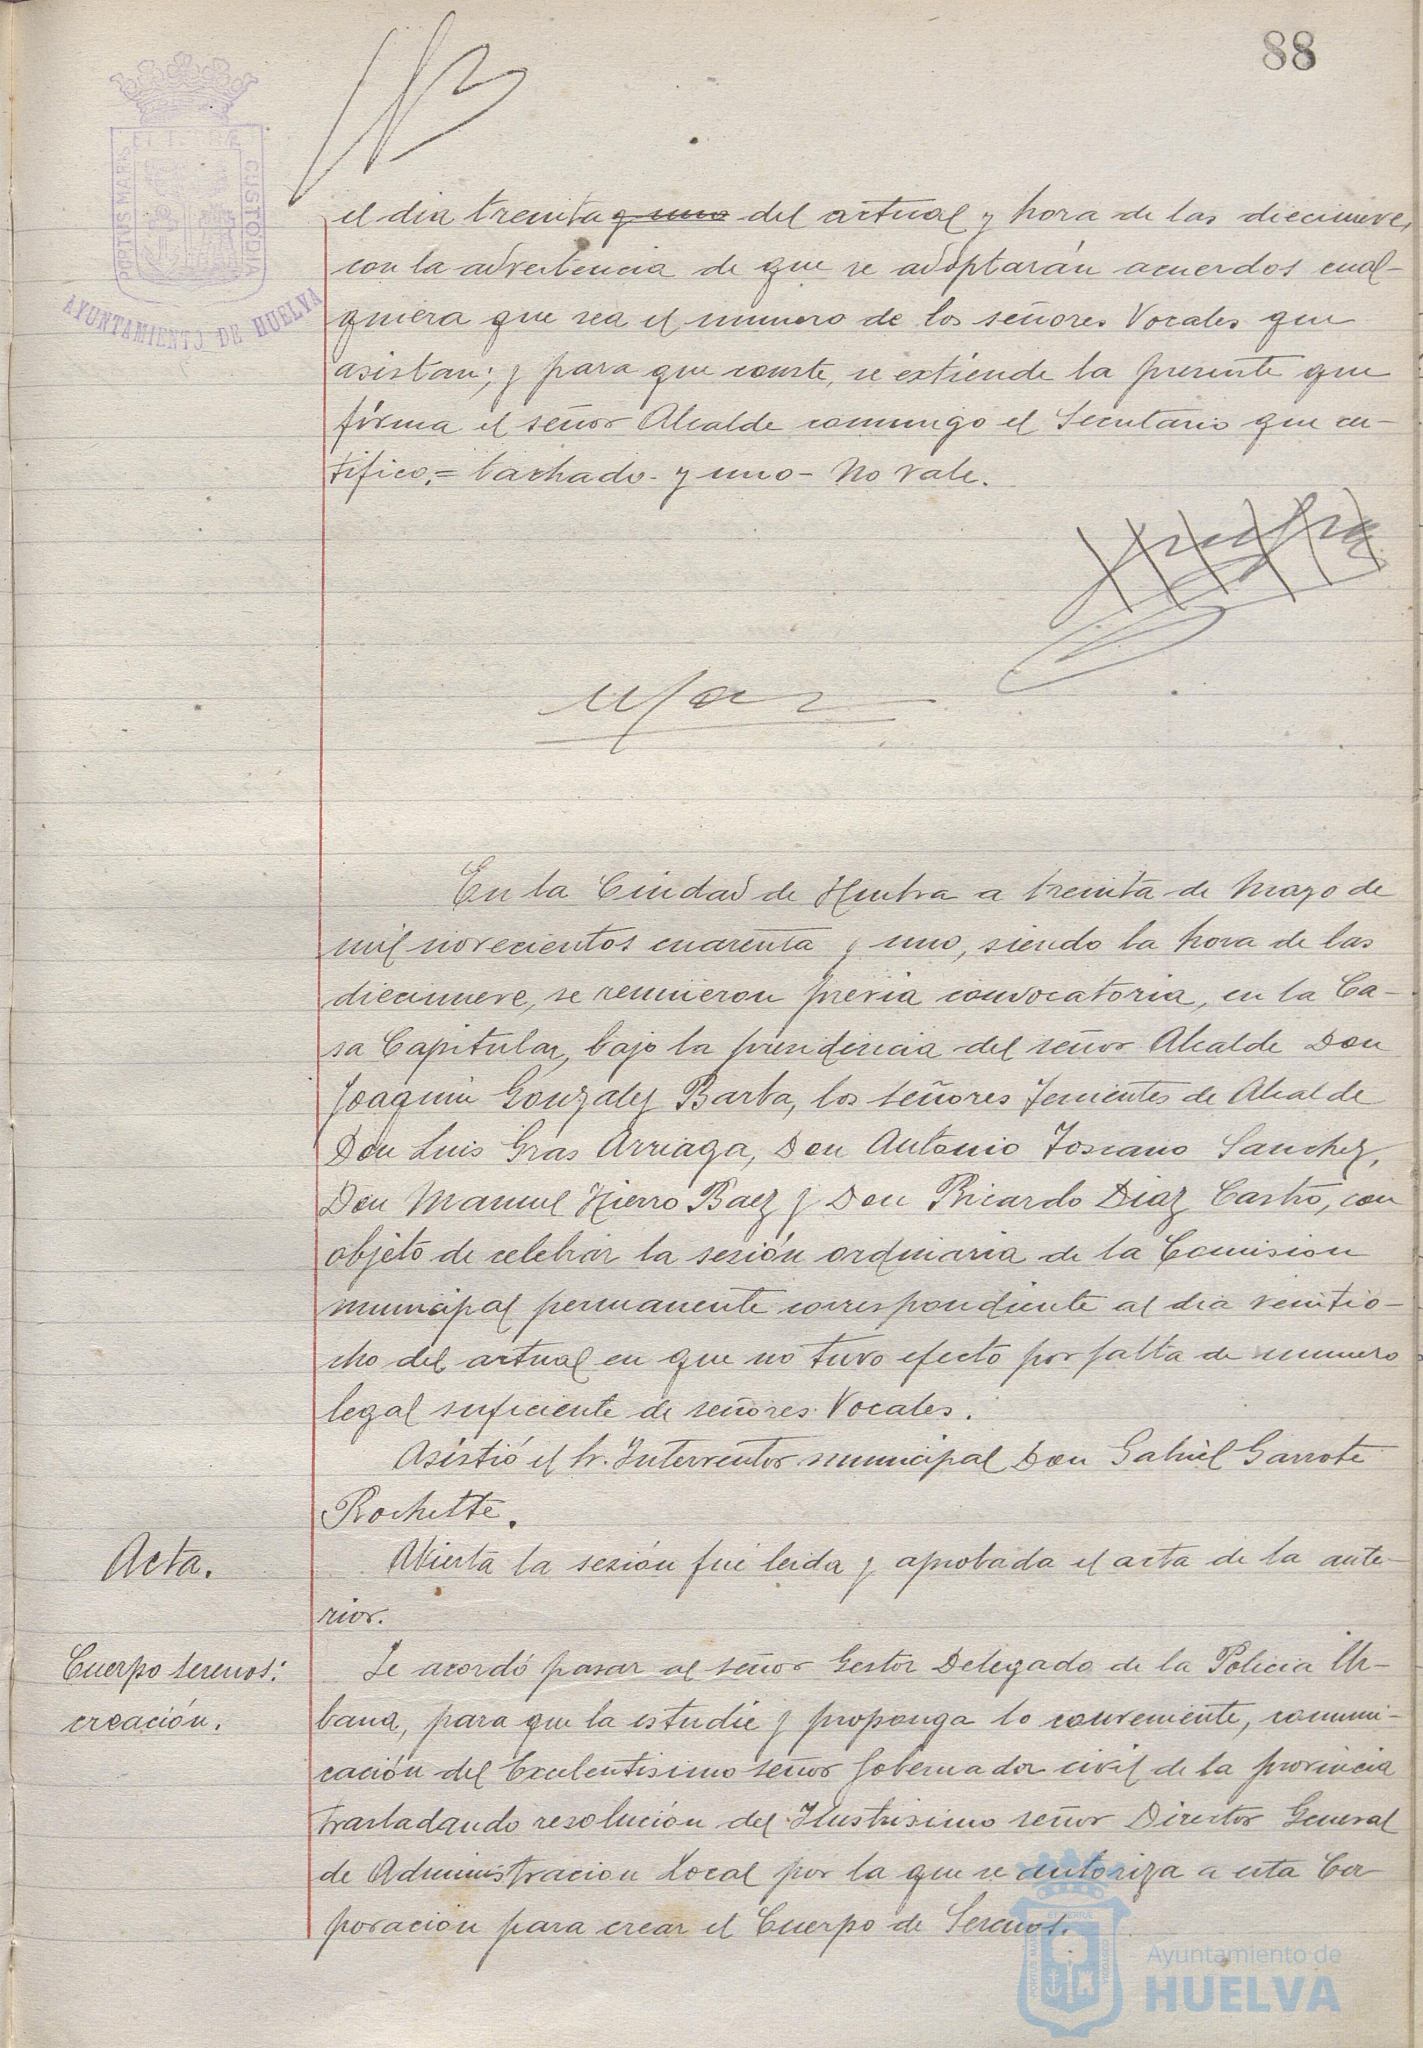 88
ET TERRÆ
PORTUS MARIS
CUSTODIA
AYUNTAMIENTO DE HUELVA
el dia treinta y uno del actual y hora de las diecinueve,
con la advertencia de que se adoptarán acuerdos cual-
quiera que sea el numero de los señores Vocales que
asistan; y para que conste, se extiende la presente que
firma el señor Alcalde conmigo el Secretario que cer-
tifico.= tachado- y uno- No vale.
En la Ciudad de Huelva a treinta de Mayo de
mil novecientos cuarenta y uno, siendo la hora de las
diecinueve, se reunieron previa convocatoria, en la Ca-
sa Capitular, bajo la presidencia del señor Alcalde Don
Joaquin Gonzalez Barba, los señores Tenientes de Alcalde
Don Luis Gras Arriaga, Don Antonio Toscano Sanchez,
Don Manuel Hierro Baez y Don Ricardo Diaz Castro, con
objeto de celebrar la sesión ordinaria de la Comision
municipal permanente correspondiente al dia veintio-
cho del actual en que no tuvo efecto por falta de numero
legal suficiente de señores Vocales.
Asistió el Sr. Interventor municipal Don Gabriel Garrote
Rochette.
Acta.
Abierta la sesión fué leida y aprobada el acta de la ante-
rior.
Cuerpo serenos:
creación.
Se acordó pasar al señor Gestor Delegado de la Policia Ur-
bana, para que la estudie y proponga lo conveniente, comuni-
cación del Excelentisimo señor Gobernador civil de la provincia
trasladando resolución del Ilustrisimo señor Director General
de Administracion Local por la que se autoriza a esta Cor-
poración para crear el Cuerpo de Serenos.
Ayuntamiento de
HUELVA